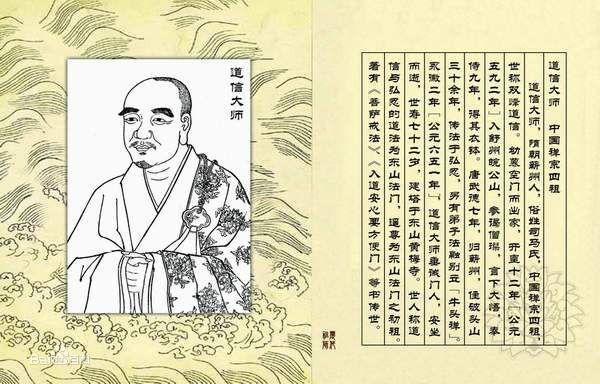 道信大师
道信大师　中国禅宗四祖
道信大师，隋朝蕲州人，俗姓司马氏，中国禅宗四祖，
世称双峰道信。幼慕空门而出家，开皇十二年［公元
五九二年］入舒州皖公山，参谒僧璨，言下大悟，奉
侍九年，得其衣钵。唐武德七年，归蕲州，住破头山
三十余年，传法于弘忍，另有弟子法融别立「牛头禅」。
永徽二年［公元六五一年］，道信大师垂诫门人，安坐
而逝，世寿七十二岁，建塔于东山黄梅寺。世人称道
信与弘忍的道法为东山法门，遥尊为东山法门之初祖。
著有《菩萨戒法》《入道安心要方便门》等书传世。